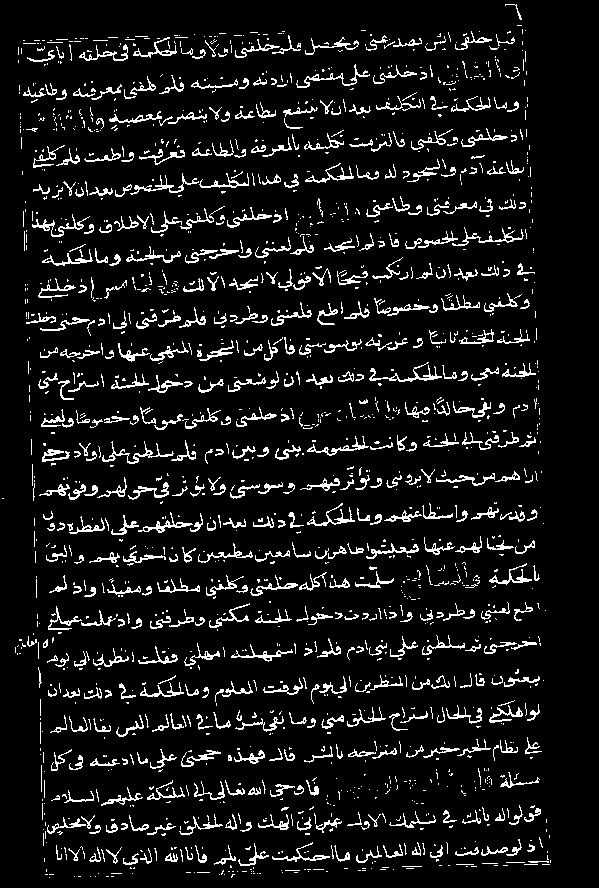 قبل خلقى ايش يصدر عنى ويحصل فلم خلقنى اولا وما الحكمة فى خلقه اياى
والثانى اذ خلقنى على مقتضى ارادته ومشيته فلم كلفنى بمعرفته وطاعته
وما الحكمة فى التكليف بعد ان لا ينتفع بطاعة ولا يتضرر بمعصية والثالث
اذ خلقنى وكلفنى فالتزمت تكليفه بالمعرفة والطاعة فعرفت واطعت فلم كلفنى
بطاعة آدم والسجود له وما الحكمة فى هذا التكليف على الخصوص بعد ان لا يزيد
ذلك فى معرفتى وطاعتى والرابع اذ خلقنى وكلفنى على الاطلاق وكلفنى بهذا
التكليف على الخصوص فاذ لم اسجد فلم لعننى واخرجنى من الجنة وما الحكمة
فى ذلك بعد ان لم ارتكب قبيحا الا قولى لا اسجد الا لك والخامس اذ خلقنى
وكلفنى مطلقا وخصوصا فلم اطع فلعننى وطردنى فلم طرقنى الى ادم حتى دخلت
الجنة ثانيا وغررته بوسوستى فاكل من الشجرة المنهى عنها واخرجه من
الجنة معى وما الحكمة فى ذلك بعد ان لو منعنى من دخول الجنة استراح منى
ادم وبقى خالدا فيها والسادس اذ خلقنى وكلفنى عموما وخصوصا ولعننى
ثم طرقنى الى الجنة وكانت الخصومة بينى وبين ادم فلم سلطنى على اولاده حتى
اراهم من حيث لا يرونى وتؤثر فيهم وسوستى ولا يؤثر فى حولهم وقوتهم
وقدرتهم واستطاعتهم وما الحكمة فى ذلك بعد ان لو خلقهم على الفطرة دون
من يحتالهم عنها فيعيشوا طاهرين سامعين مطيعين كان احرى بهم واليق
بالحكمة والسابع سلمت هذا كله خلقنى وكلفنى مطلقا ومقيدا واذ لم
اطع لعننى وطردنى واذا اردت دخول الجنة مكننى وطرقنى واذ عملت عملى
اخرجنى ثم سلطنى على بنى ادم فلم اذ استمهلته امهلنى فقلت انظرنى الى يوم
يبعثون قال انك من المنظرين الى يوم الوقت المعلوم وما الحكمة فى ذلك بعد ان
لو اهلكنى فى الحال استراح الخلق منى وما بقى شر ما فى العالم اليس بقا العالم
على نظام الخير خير من امتزاجه بالشر قال فهذه حجتى على ما ادعته فى كل
مسئلة
فاوحى الله تعالى الى الملئكة عليهم السلام
قولوا له انك فى تسليمك الاول انى الهك واله الخلق غير صادق ولا مخلص
اذ لو صدقت انى اله العالمين ما احتكمت على بلم فانا الله الذى لا اله الا انا